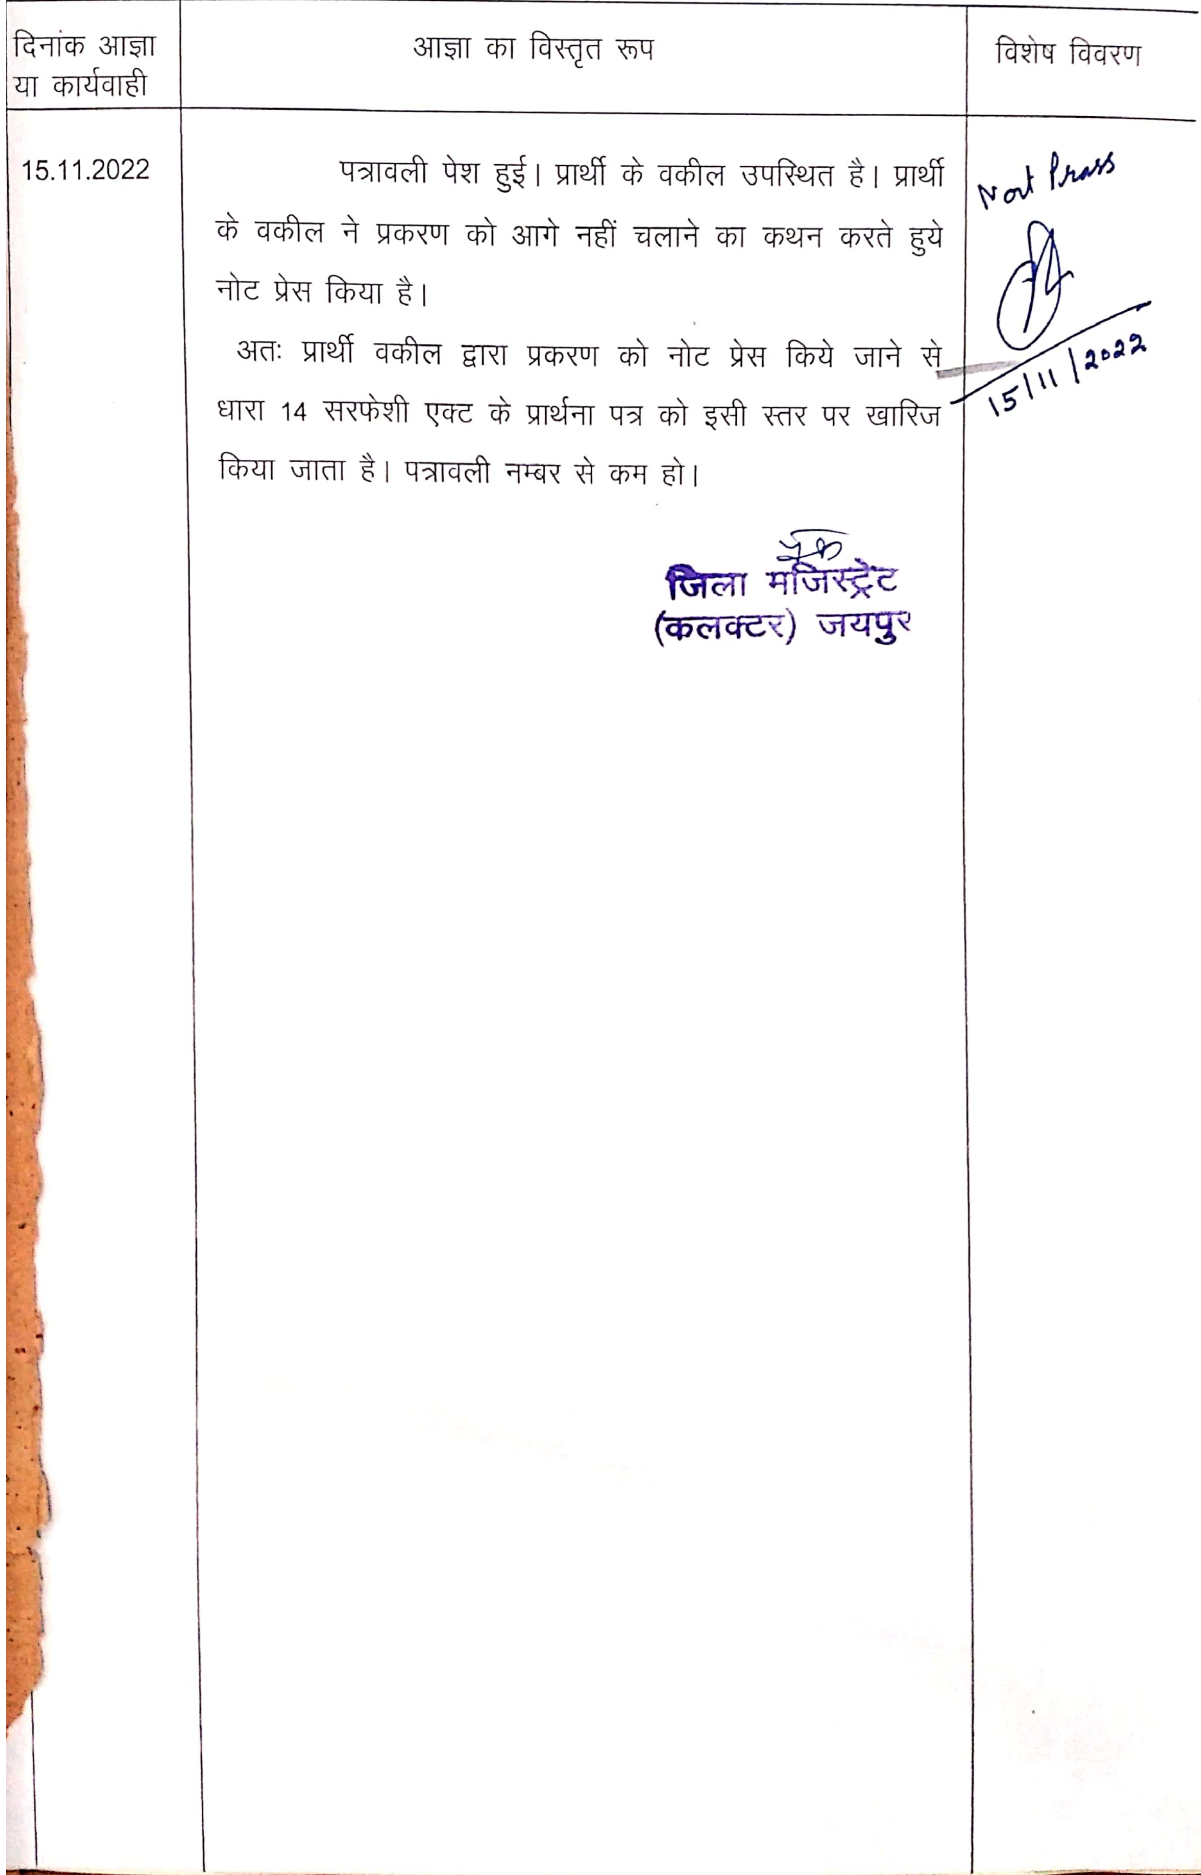 दिनांक आज्ञा
या कार्यवाही
आज्ञा का विस्तृत रूप
विशेष विवरण
15.11.2022
पत्रावली पेश हुई। प्रार्थी के वकील उपस्थित है। प्रार्थी
के वकील ने प्रकरण को आगे नहीं चलाने का कथन करते हुये
नोट प्रेस किया है।
अतः प्रार्थी वकील द्वारा प्रकरण को नोट प्रेस किये जाने से
धारा 14 सरफेशी एक्ट के प्रार्थना पत्र को इसी स्तर पर खारिज
किया जाता है। पत्रावली नम्बर से कम हो।
जिला मजिस्ट्रेट
(कलक्टर) जयपुर
Not Prass
15/11/2022